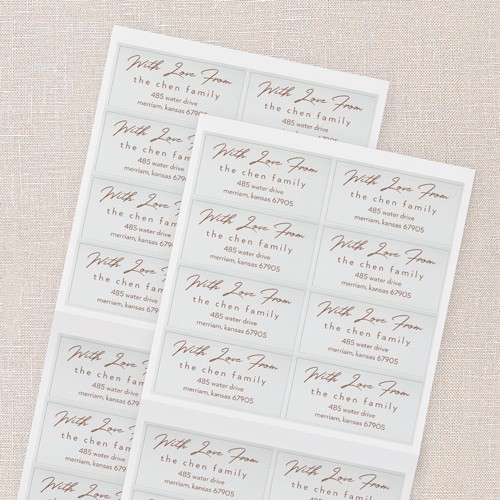 With Love From
the chen family
485 water drive
merriam, kansas 67905
With Love From
the chen family
485 water drive
With Love
the chen family
485 water drive
merriam, kansas
With Love
the chen
485 water drive
merriam, kansas
With Love
the chen
485 water drive
merriam, kansas
With Love
the chen
485 water
merriam,
With Love
the chen
485 water
merriam,
With
With Love From
the chen family
485 water drive
merriam, kansas 67905
With Love From
the chen family
485 water drive
merriam, kansas 67905
With Love From
the chen family
485 water drive
merriam, kansas 67905
With Love From
the chen family
485 water drive
merriam, kansas 67905
With Love From
the chen family
485 water drive
merriam, kansas 67905
With Love From
the chen family
485 water drive
merriam, kansas 67905
With Love From
the chen family
485 water drive
merriam, kansas 67905
With Love From
the chen family
485 water drive
merriam, kansas 67905
With Love From
the chen family
485 water drive
With Love From
the chen family